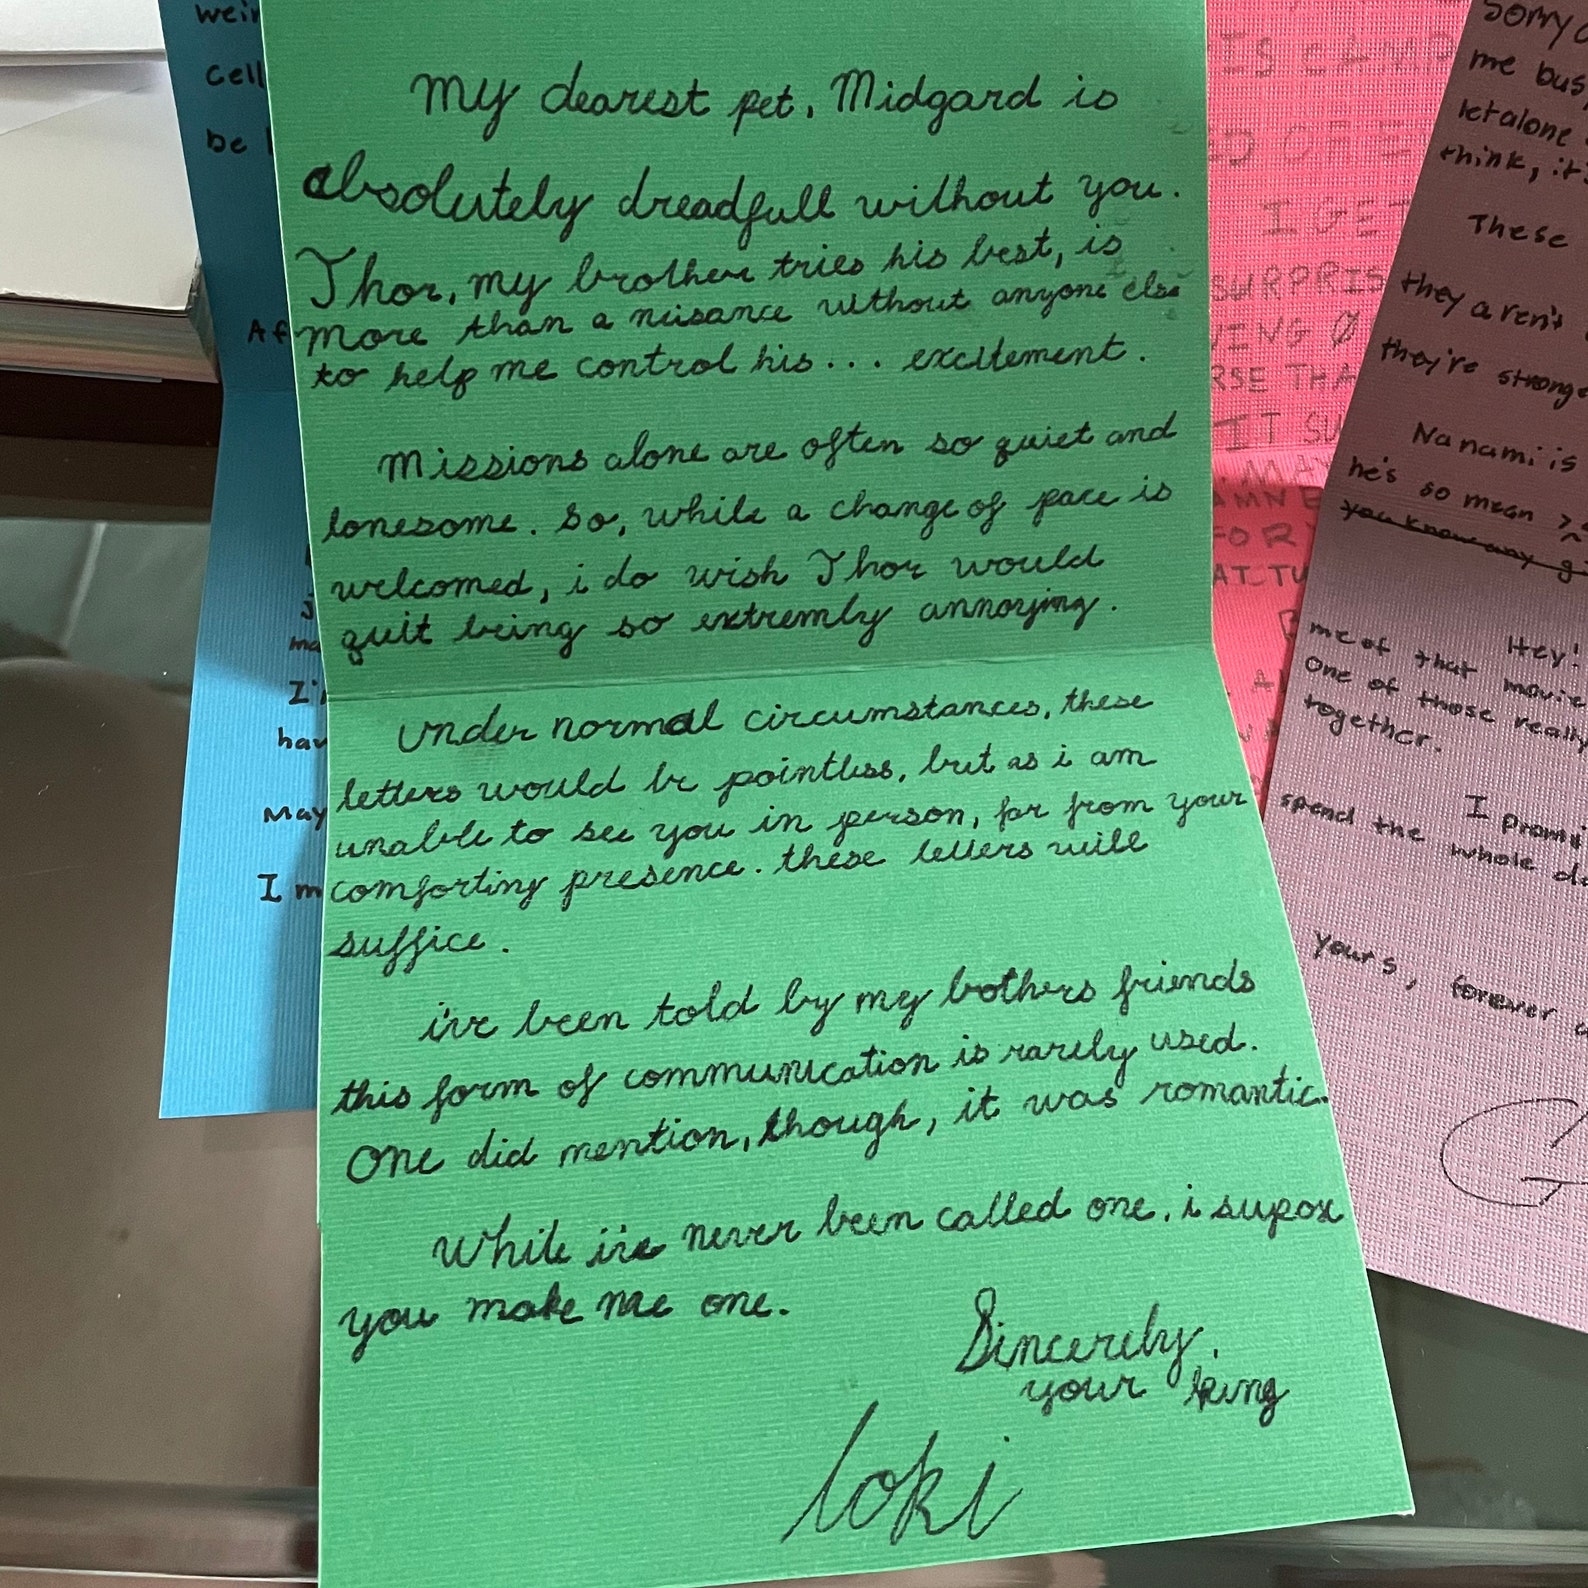 My dearest pet, Midgard is
absolutely dreadfull without you.
Thor, my brother tries his best, is
more than a nusance without anyone else
to help me control his... excitement.
Missions alone are often so quiet and
lonesome. So, while a change of pace is
welcomed, i do wish Thor would
quit being so extremly annoying.
Under normal circumstances, these
letters would be pointless, but as i am
unable to see you in person, far from your
comforting presence. these letters will
suffice.
i've been told by my bothers friends
this form of communication is rarely used.
One did mention, though, it was romantic.
While i've never been called one, i supose
you make me one.
Sincerely,
your king
loki
cell
be
Af
I'm
hav
May
I m
IS
OF
I GET
SURPRIS
VING
RSE THA
IT SU
FOR
AT TU
sorry
me busy
let alone
think, it's
These
they aren't
they're strong
Nanami is
he's so mean >
you know any
Hey!
me of that movie
One of those really
together.
I promi
spend the whole da
yours, forever
G